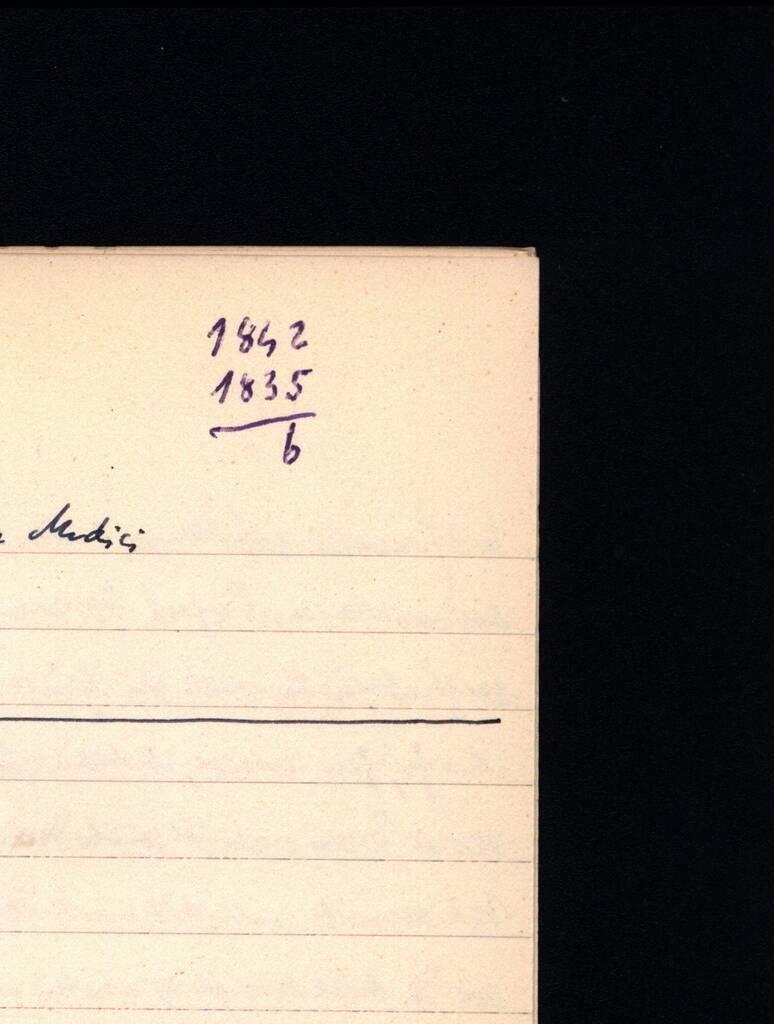 1842
1835
6
Medici